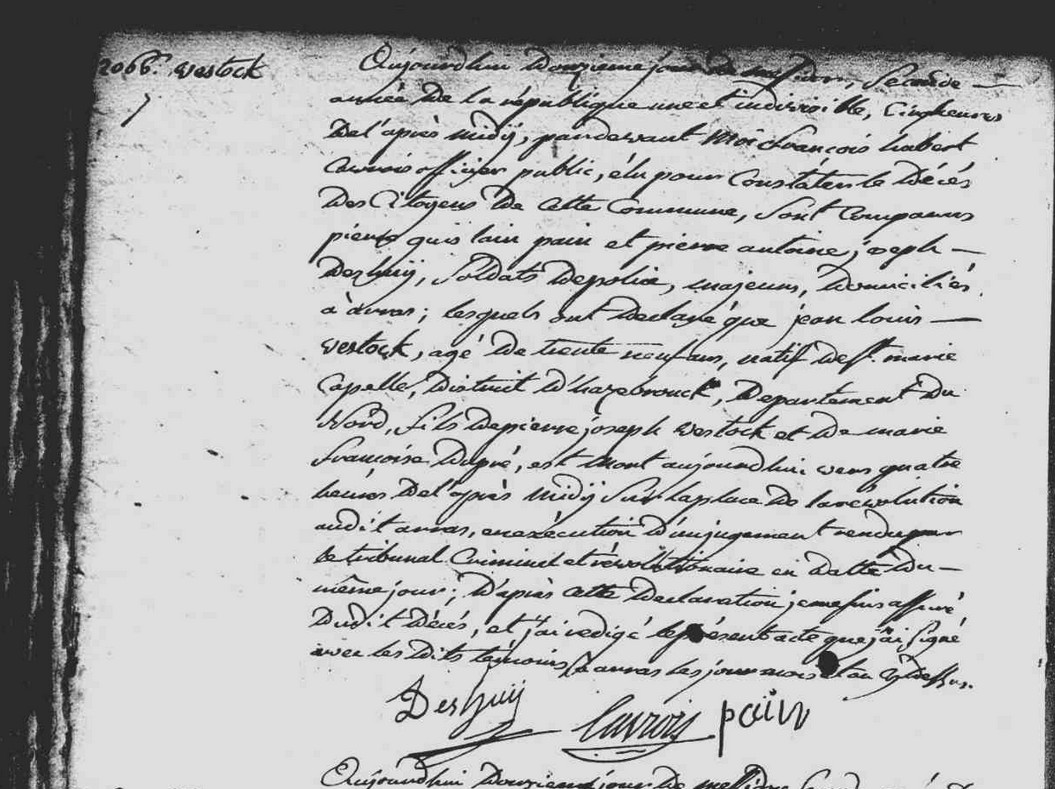 2066. Westock
Aujourdhui Douzieme jour de messidor, Seconde
année De la république une et indivisible, Cinq heures
De l'après midÿ, pardevant Moi francois hubert
Cavrois officier public, élu pour Constater le Décés
Des Citoyens De Cette Commune, Sont Comparus
pierre guislain pain et pierre antoine joseph
Deshuij, Soldats De police, majeurs, Domiciliés
à arras; lesquels ont Declaré que jean louis
Westock, agé De trente neuf ans, natif De St. marie
Capelle, District D'hazebrouck, Departement Du
Nord, fils De pierre joseph Westock et De marie
francoise Dupré, est Mort aujourdhui vers quatre
heures De l'après Midÿ Sur la place De la revolution
audit arras, en exécution D'un jugement rendu par
le tribunal Criminel et révolutionaire en Datte Du
même jour; D'après Cette Declaration je me suis assuré
Dudit Décés, et j'ai redigé le présent acte que j'ai Signé
avec les Dits témoins à arras les jour mois et an Cydessus.
Deshuij Cavrois pain
Aujourdhui Douzieme jour De messidor